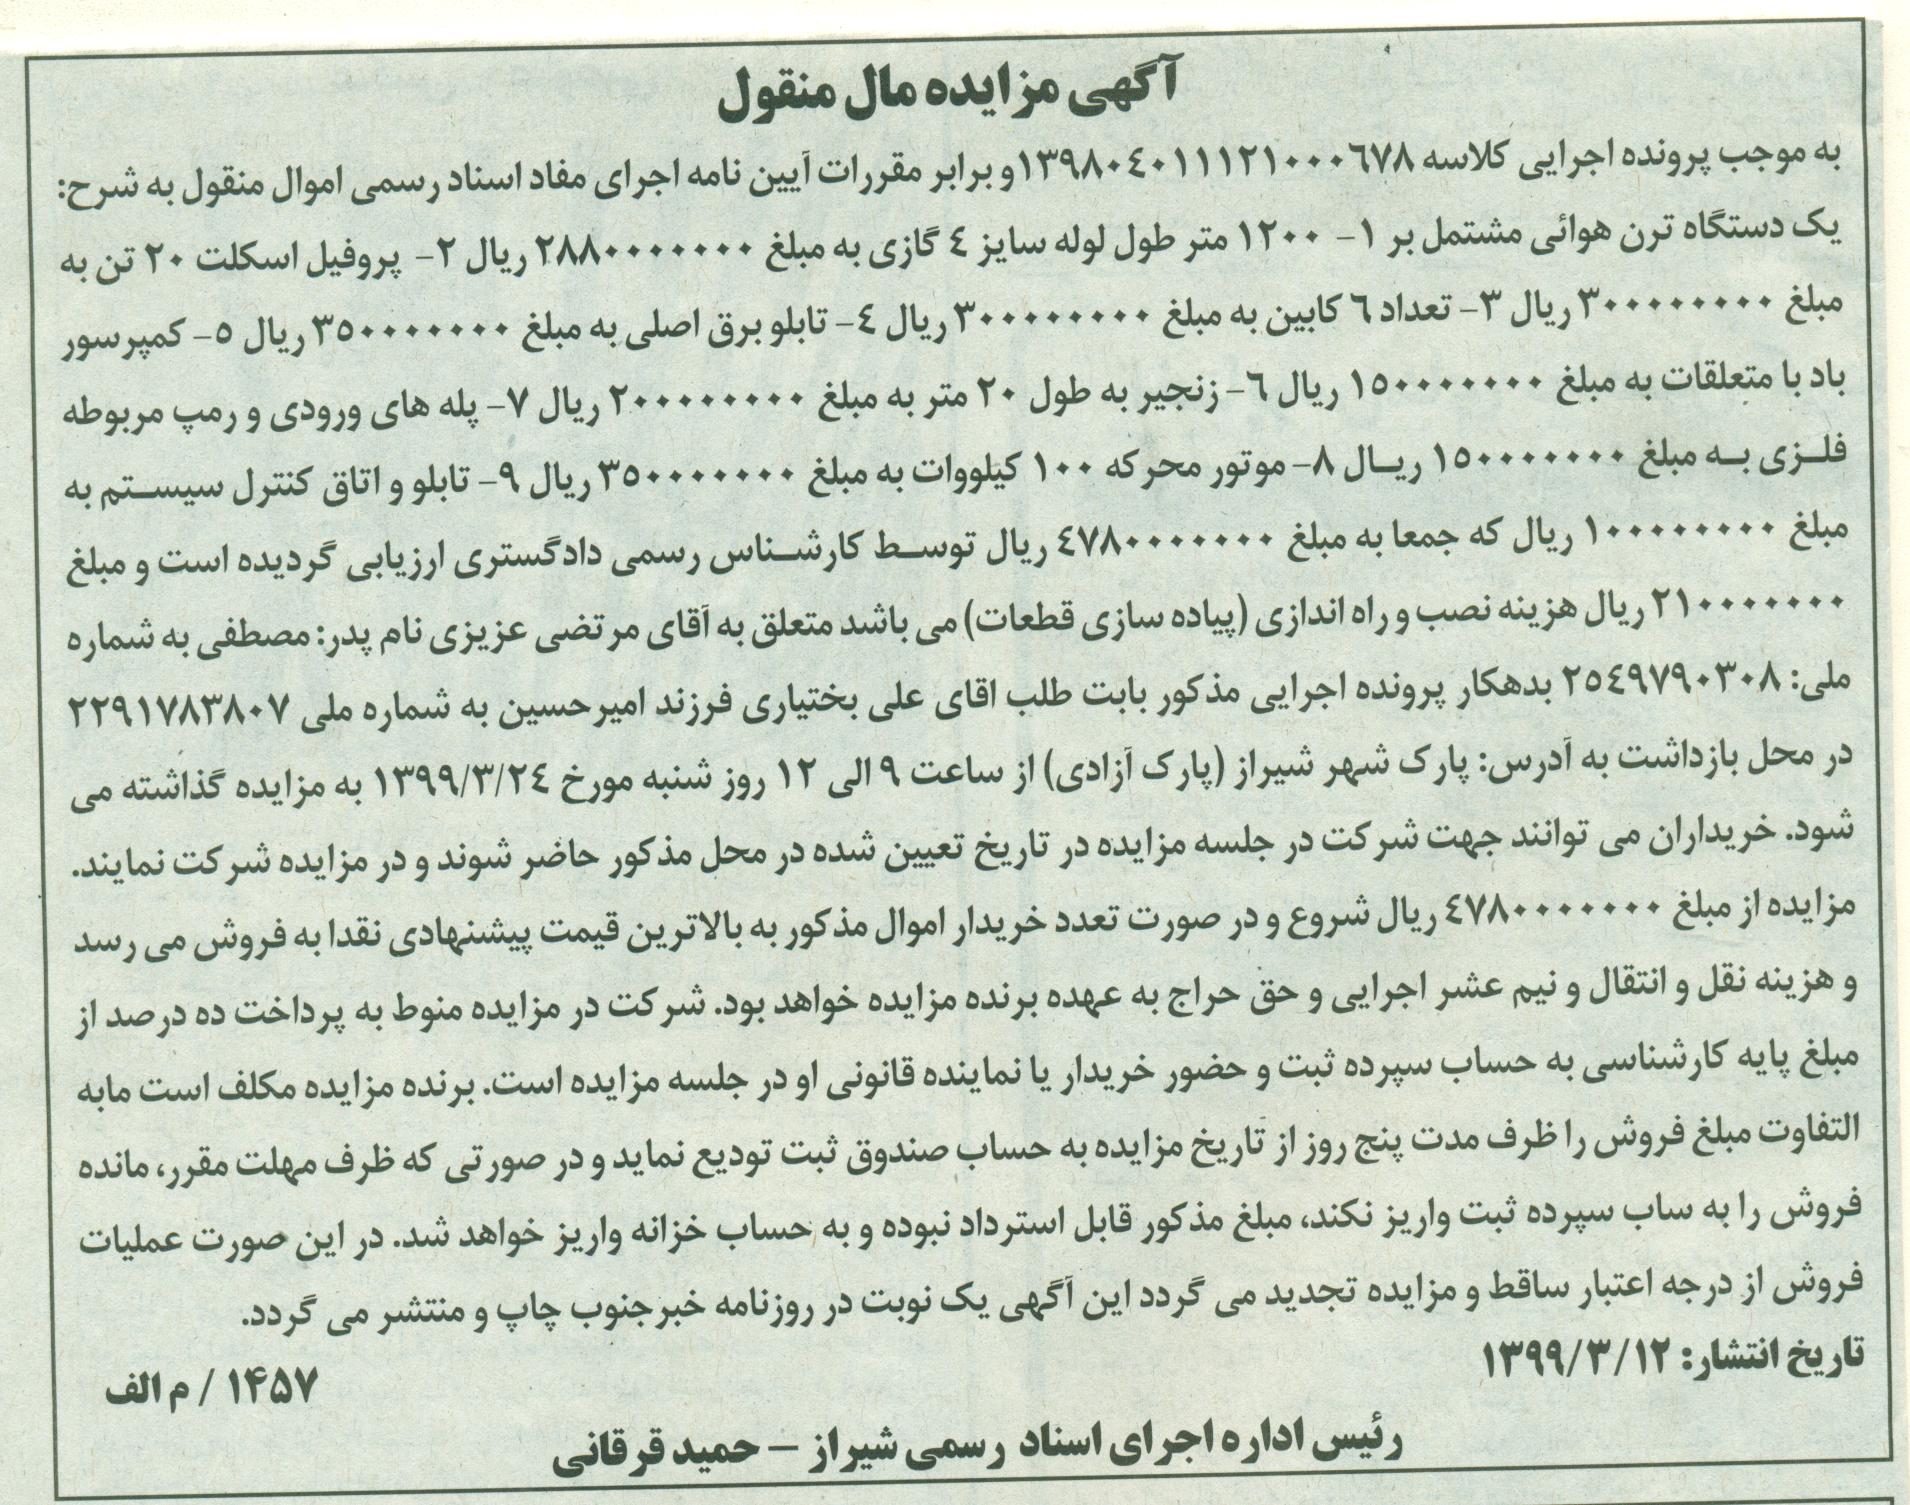 آگهی مزایده مال منقول
به موجب پرونده اجرایی کلاسه ١٣٩٨٠٤٠١١١٢١٠٠٠٦٧٨و برابر مقررات آیین نامه اجرای مفاد اسناد رسمی اموال منقول به شرح:
یک دستگاه ترن هوائی مشتمل بر ١- ١٢٠٠ متر طول لوله سایز ٤ گازی به مبلغ ٢٨٨٠٠٠٠٠٠٠ ریال ٢- پروفیل اسکلت ٢٠ تن به
مبلغ ٣٠٠٠٠٠٠٠٠ ریال ٣- تعداد ٦ کابین به مبلغ ٣٠٠٠٠٠٠٠٠ ریال ٤- تابلو برق اصلی به مبلغ ٣٥٠٠٠٠٠٠٠ ریال ٥- کمپرسور
باد با متعلقات به مبلغ ١٥٠٠٠٠٠٠٠ ریال ٦- زنجیر به طول ٢٠ متر به مبلغ ٢٠٠٠٠٠٠٠٠ ریال ٧- پله های ورودی و رمپ مربوطه
فلزی به مبلغ ١٥٠٠٠٠٠٠٠ ریال ٨- موتور محرکه ١٠٠ کیلووات به مبلغ ٣٥٠٠٠٠٠٠٠ ریال ٩- تابلو و اتاق کنترل سیستم به
مبلغ ١٠٠٠٠٠٠٠٠ ریال که جمعا به مبلغ ٤٧٨٠٠٠٠٠٠٠ ریال توسط کارشناس رسمی دادگستری ارزیابی گردیده است و مبلغ
٢١٠٠٠٠٠٠٠ ریال هزینه نصب و راه اندازی (پیاده سازی قطعات) می باشد متعلق به آقای مرتضی عزیزی نام پدر: مصطفی به شماره
ملی: ٢٥٤٩٧٩٠٣٠٨ بدهکار پرونده اجرایی مذکور بابت طلب اقای علی بختیاری فرزند امیرحسین به شماره ملی ٢٢٩١٧٨٣٨٠٧
در محل بازداشت به آدرس: پارک شهر شیراز (پارک آزادی) از ساعت ٩ الی ١٢ روز شنبه مورخ ١٣٩٩/٣/٢٤ به مزایده گذاشته می
شود. خریداران می توانند جهت شرکت در جلسه مزایده در تاریخ تعیین شده در محل مذکور حاضر شوند و در مزایده شرکت نمایند.
مزایده از مبلغ ٤٧٨٠٠٠٠٠٠٠ ریال شروع و در صورت تعدد خریدار اموال مذکور به بالاترین قیمت پیشنهادی نقدا به فروش می رسد
و هزینه نقل و انتقال و نیم عشر اجرایی و حق حراج به عهده برنده مزایده خواهد بود. شرکت در مزایده منوط به پرداخت ده درصد از
مبلغ پایه کارشناسی به حساب سپرده ثبت و حضور خریدار یا نماینده قانونی او در جلسه مزایده است. برنده مزایده مکلف است مابه
التفاوت مبلغ فروش را ظرف مدت پنج روز از تاریخ مزایده به حساب صندوق ثبت تودیع نماید و در صورتی که ظرف مهلت مقرر، مانده
فروش را به ساب سپرده ثبت واریز نکند، مبلغ مذکور قابل استرداد نبوده و به حساب خزانه واریز خواهد شد. در این صورت عملیات
فروش از درجه اعتبار ساقط و مزایده تجدید می گردد این آگهی یک نوبت در روزنامه خبرجنوب چاپ و منتشر می گردد.
تاریخ انتشار: ۱۳۹۹/۳/۱۲
۱۴۵۷ / م الف
رئیس اداره اجرای اسناد رسمی شیراز – حمید قرقانی